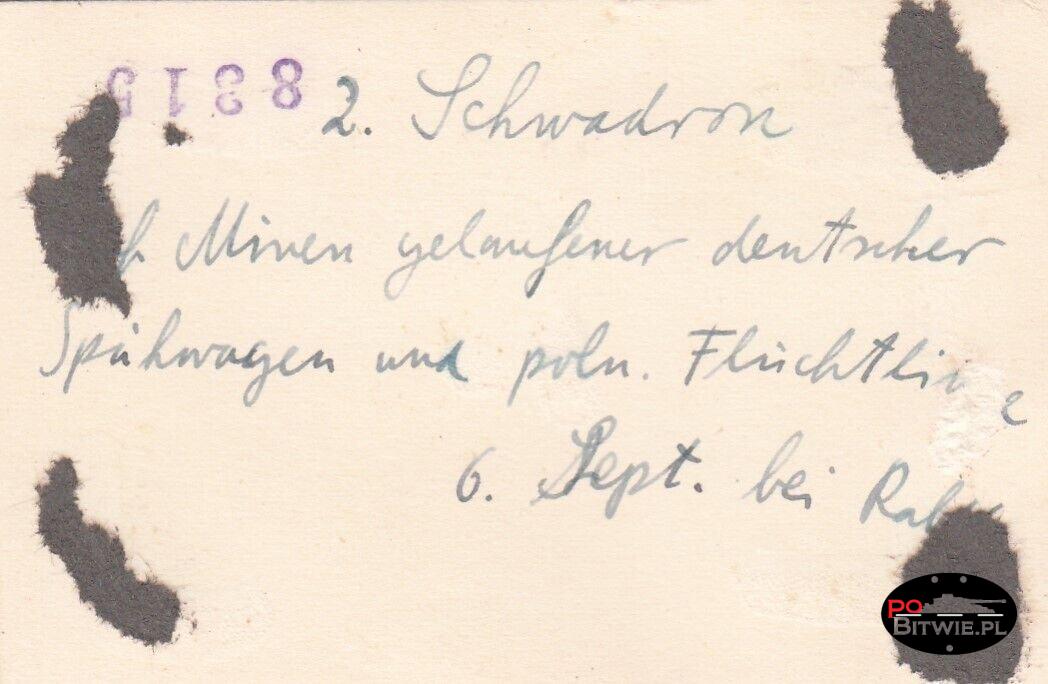 8315
2. Schwadron
Minen gelaufener deutscher
Spähwagen und poln.
6. Sept. bei
PO
BITWIE.PL